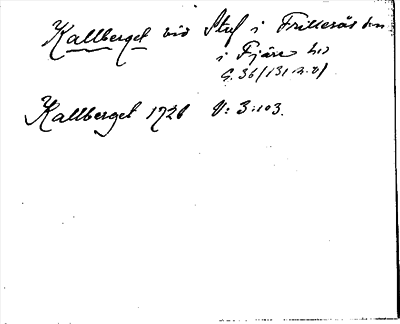 Kallberget vid Stuf i Frillesås sn
i Fjäre hd
G.36/131
Kallberget 1726 V: 3:103.